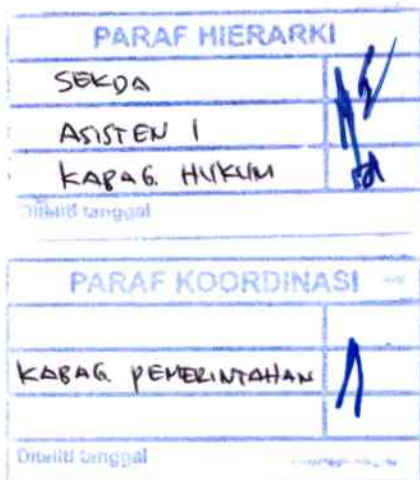 PARAF HIERARKI
SEKDA
ASISTEN I
KABAG. HUKUM
Diteliti tanggal
PARAF KOORDINASI
KABAG. PEMERINTAHAN
Diteliti tanggal